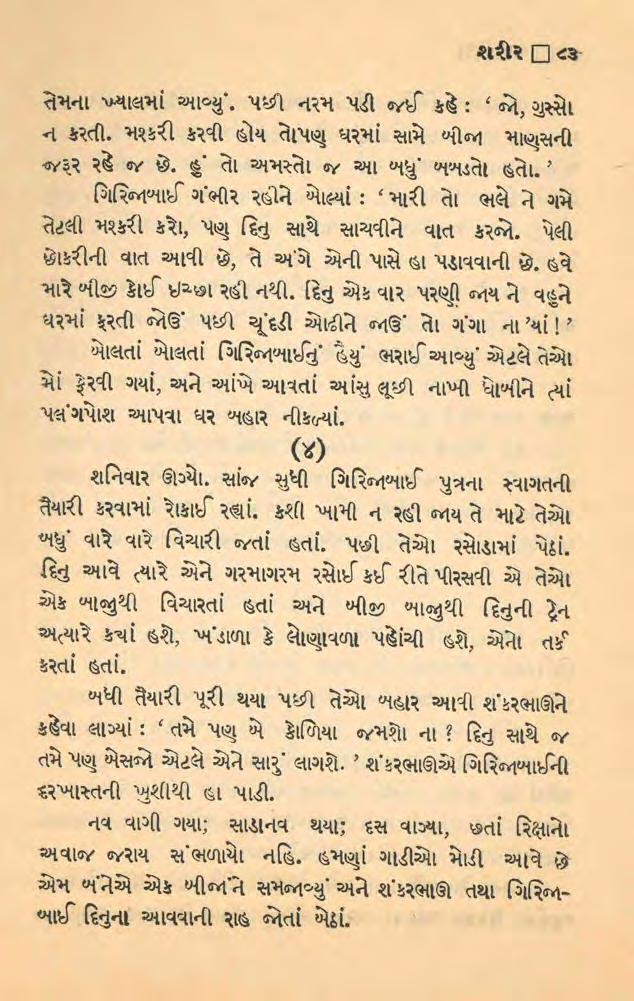 શરીર □ ૮૩
તેમના ખ્યાલમાં આવ્યું. પછી નરમ પડી જઈ કહે : ‘ જો, ગુસ્સો
ન કરતી. મશ્કરી કરવી હોય તોપણ ઘરમાં સામે બીજા માણસની
જરૂર રહે જ છે. હું તો અમસ્તો જ આ બધું બબડતો હતો. ’
ગિરિજાબાઈ ગંભીર રહીને બોલ્યાં : ‘ મારી તો ભલે ને ગમે
તેટલી મશ્કરી કરો, પણ દિનુ સાથે સાચવીને વાત કરજો. પેલી
છોકરીની વાત આવી છે, તે અંગે એની પાસે હા પડાવવાની છે. હવે
મારે બીજી કોઈ ઇચ્છા રહી નથી. દિનુ એક વાર પરણી જાય ને વહુને
ઘરમાં ફરતી જોઉં પછી ચૂંદડી ઓઢીને જાઉં તો ગંગા ના’યાં ! ’
બોલતાં બોલતાં ગિરિજાબાઈનું હૈયું ભરાઈ આવ્યું એટલે તેઓ
મોં ફેરવી ગયાં, અને આંખે આવતાં આંસુ લૂછી નાખી ધોબીને ત્યાં
પલંગપોશ આપવા ઘર બહાર નીકળ્યાં.
(૪)
શનિવાર ઊગ્યો. સાંજ સુધી ગિરિજાબાઈ પુત્રના સ્વાગતની
તૈયારી કરવામાં રોકાઈ રહ્યાં. કશી ખામી ન રહી જાય તે માટે તેઓ
બધું વારે વારે વિચારી જતાં હતાં. પછી તેઓ રસોડામાં પેઠાં.
દિનુ આવે ત્યારે એને ગરમાગરમ રસોઈ કઈ રીતે પીરસવી એ તેઓ
એક બાજુથી વિચારતાં હતાં અને બીજી બાજુથી દિનુની ટ્રેન
અત્યારે કયાં હશે, ખંડાળા કે લોણાવળા પહોંચી હશે, એનો તર્ક
કરતાં હતાં.
બધી તૈયારી પૂરી થયા પછી તેઓ બહાર આવી શંકરભાઊને
કહેવા લાગ્યાં : ‘ તમે પણ બે કોળિયા જમશો ના ? દિનુ સાથે જ
તમે પણ બેસજો એટલે એને સારું લાગશે. ’ શંકરભાઊએ ગિરિજાબાઈની
દરખાસ્તની ખુશીથી હા પાડી.
નવ વાગી ગયા; સાડાનવ થયા; દસ વાગ્યા, છતાં રિક્ષાનો
અવાજ જરાય સંભળાયો નહિ. હમણાં ગાડીઓ મોડી આવે છે
એમ બંનેએ એક બીજાંને સમજાવ્યું અને શંકરભાઊ તથા ગિરિજા-
બાઈ દિનુના આવવાની રાહ જોતાં બેઠાં.